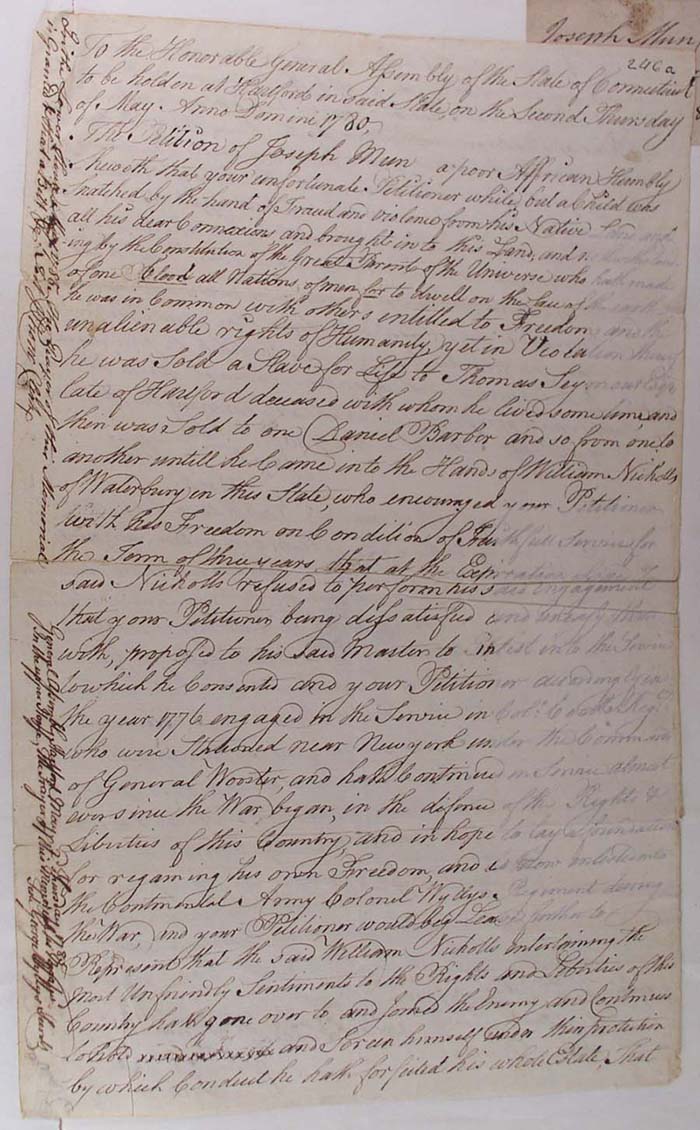 Joseph Mun
246a
To the Honorable General Assembly of the State of Connecticut
to be holden at Hartford in said State, on the Second Thursday
of May Anno Domini 1780,
The Petition of Joseph Mun a poor Affrican Humbly
sheweth that your unfortunate Petitioner while but a Child was
snatched by the hand of Fraud and violence from his Native and
all his dear Connexions and brought in to this Land, and
ing by the Constitution of the Great Parent of the Universe who hath made
of one Blood all Nations of men for to dwell on the face of the earth
he was in Common with others intitled to Freedom and the
unalienable rights of Humanity, yet in Viola tion thereof
he was Sold a Slave for Life to Thomas Sey
late of Hartford deceased with whom he lived some time and
then was Sold to one Daniel Barbor and so from one to
another untill he Came into the Hands of William Nicholls
of Waterbury in this State, who encouraged your Petitioner
with his Freedom on Condition of Faithfull Service for
the Term of three years that at the Expiration
said Nicholls refused to perform his said engagement
that your Petitioner being dissatisfied and uneasy there
with, proposed to his said Master to inlist into the Service
to which he Consented and your Petitioner accordingly in
the year 1776 engaged in the Service in Colº Regt
who were Stationed near Newyork under the Command
of General Wooster, and hath Continued in Service almost
ever since the War began, in the defence of the Rights &
Liberties of this Country, and in hope to lay a foundation
for regaining his own Freedom, and is now inlisted into
the Continental Army Colonel Wyllys Regiment during
the War, and your Petitioner would beg Leave further to
Represent that the said William Nicholls entertaining the
most Unfriendly Sentiments to the Rights and Liberties of this
Country hath gone over to and Joined the Enemy and Continues
to hold and Screen himself under their protection
by which Conduct he hath forfeited his whole Estate, That
In the Lower House
the Prayer of this Memorial
is Granted & that a Bill &c.
Clerk
General Assembly May 1780
In the upper House, the Prayer of this Memorial
Test George Wyllys Secrety